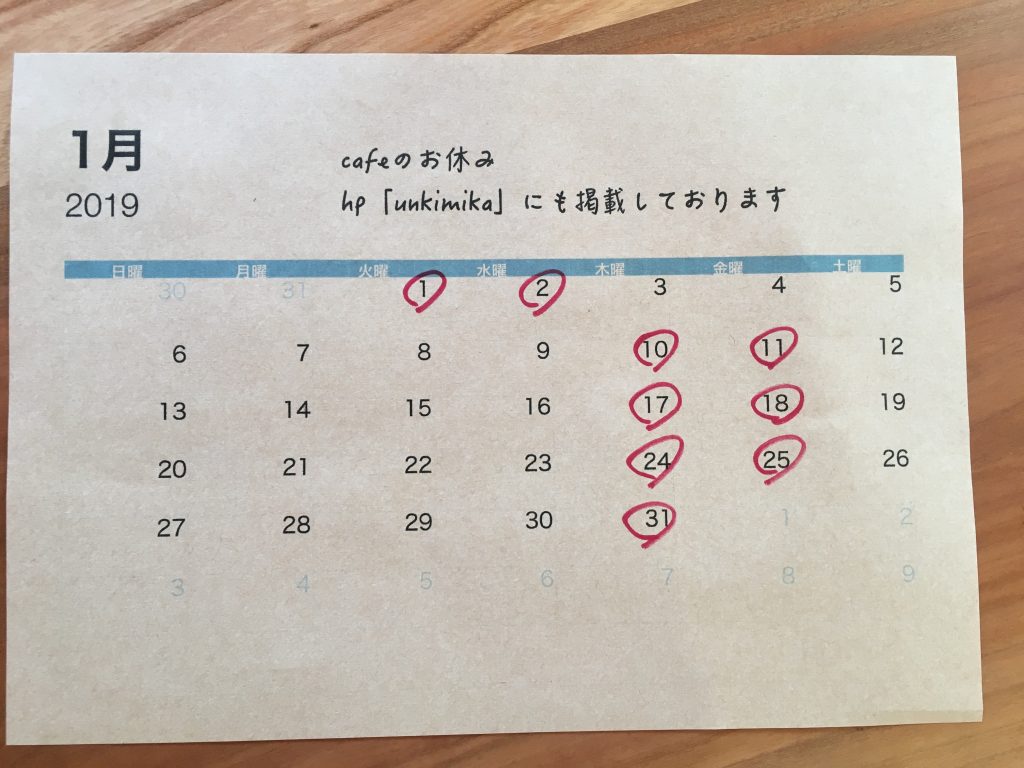 1月
2019
cafeのお休み
hp「unkimika」にも掲載しております
日曜 月曜 火曜 水曜 木曜 金曜 土曜
30 31 1 2 3 4 5
6 7 8 9 10 11 12
13 14 15 16 17 18 19
20 21 22 23 24 25 26
27 28 29 30 31 1 2
3 4 5 6 7 8 9